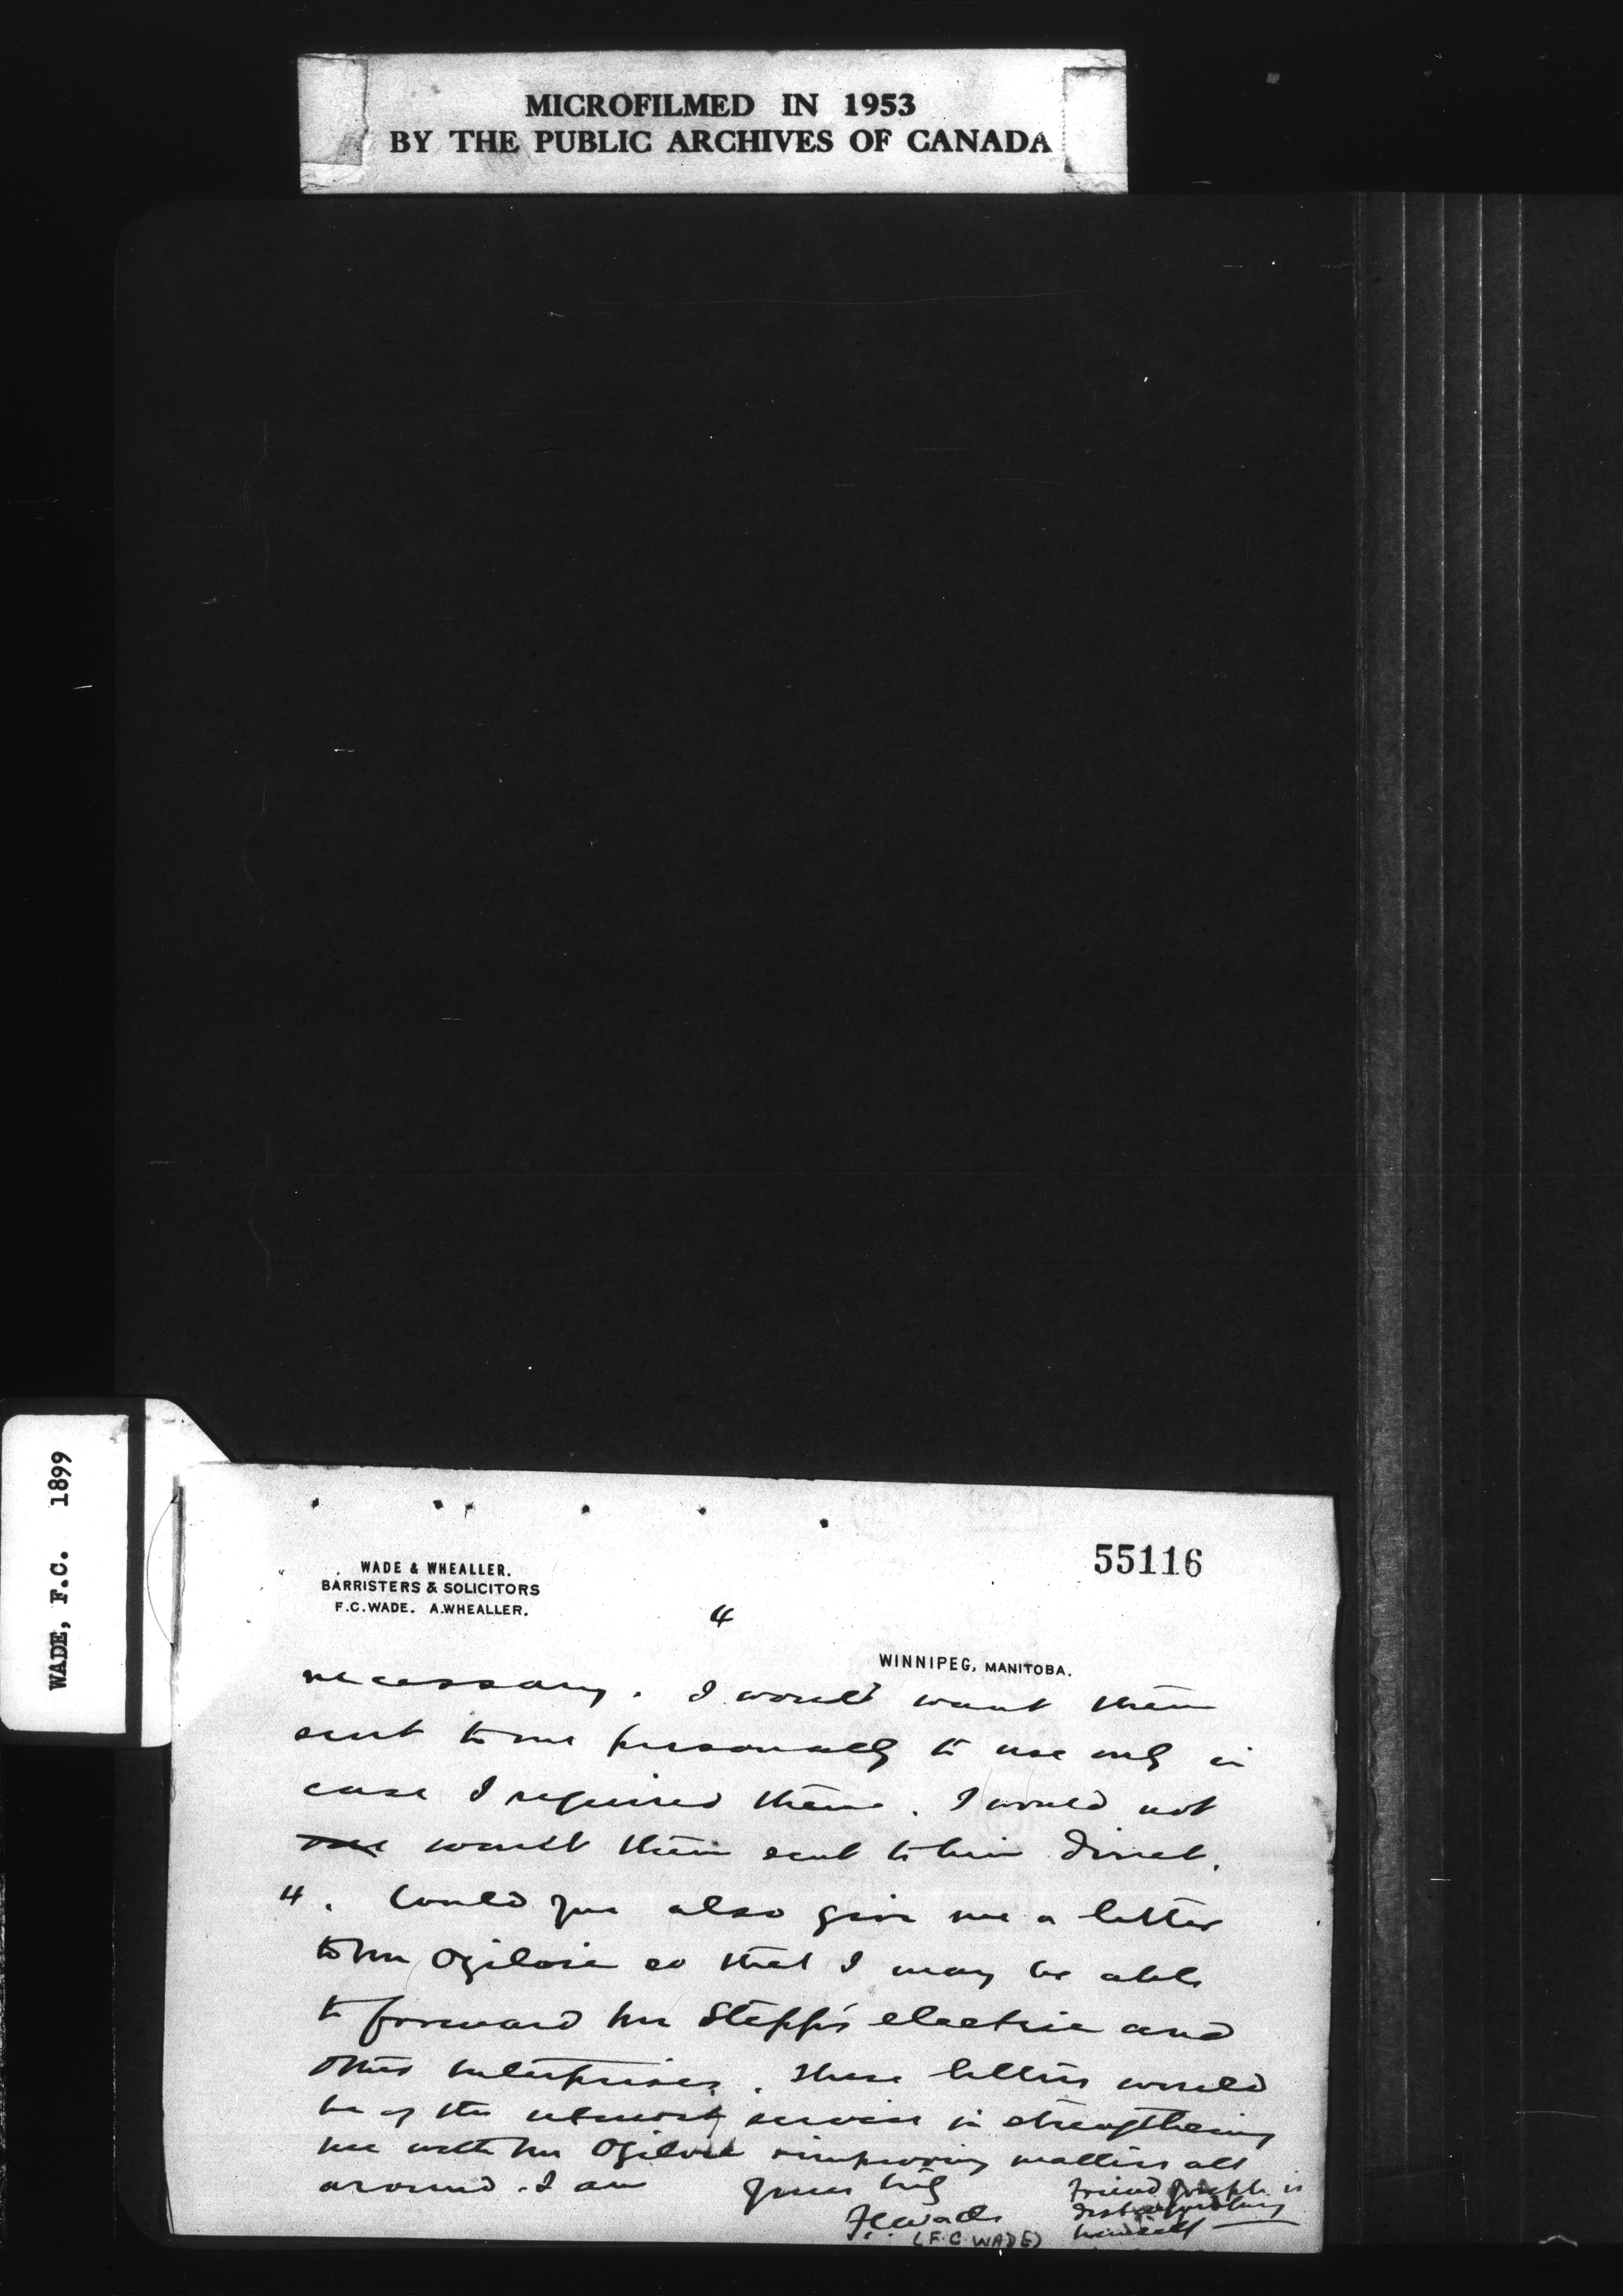 MICROFILMED IN 1953
BY THE PUBLIC ARCHIVES OF CANADA
WADE, F.C. 1899
55116
WADE & WHEALLER.
BARRISTERS & SOLICITORS
F.C. WADE. A. WHEALLER.
4
WINNIPEG, MANITOBA.
necessary. I would want them
sent to me personally to use only in
case I required them. I would not
want them sent to him direct.
4. Could you also give me a letter
to Mr Ogilvie so that I may be able
to forward Mr Stepp's electric and
other enterprises. These letters would
be of the utmost service in strengthening
me with Mr Ogilvie & improving matters all
around. I am Yours truly
F C Wade
(F.C. WADE)
Friend Joseph is
distinguishing
himself